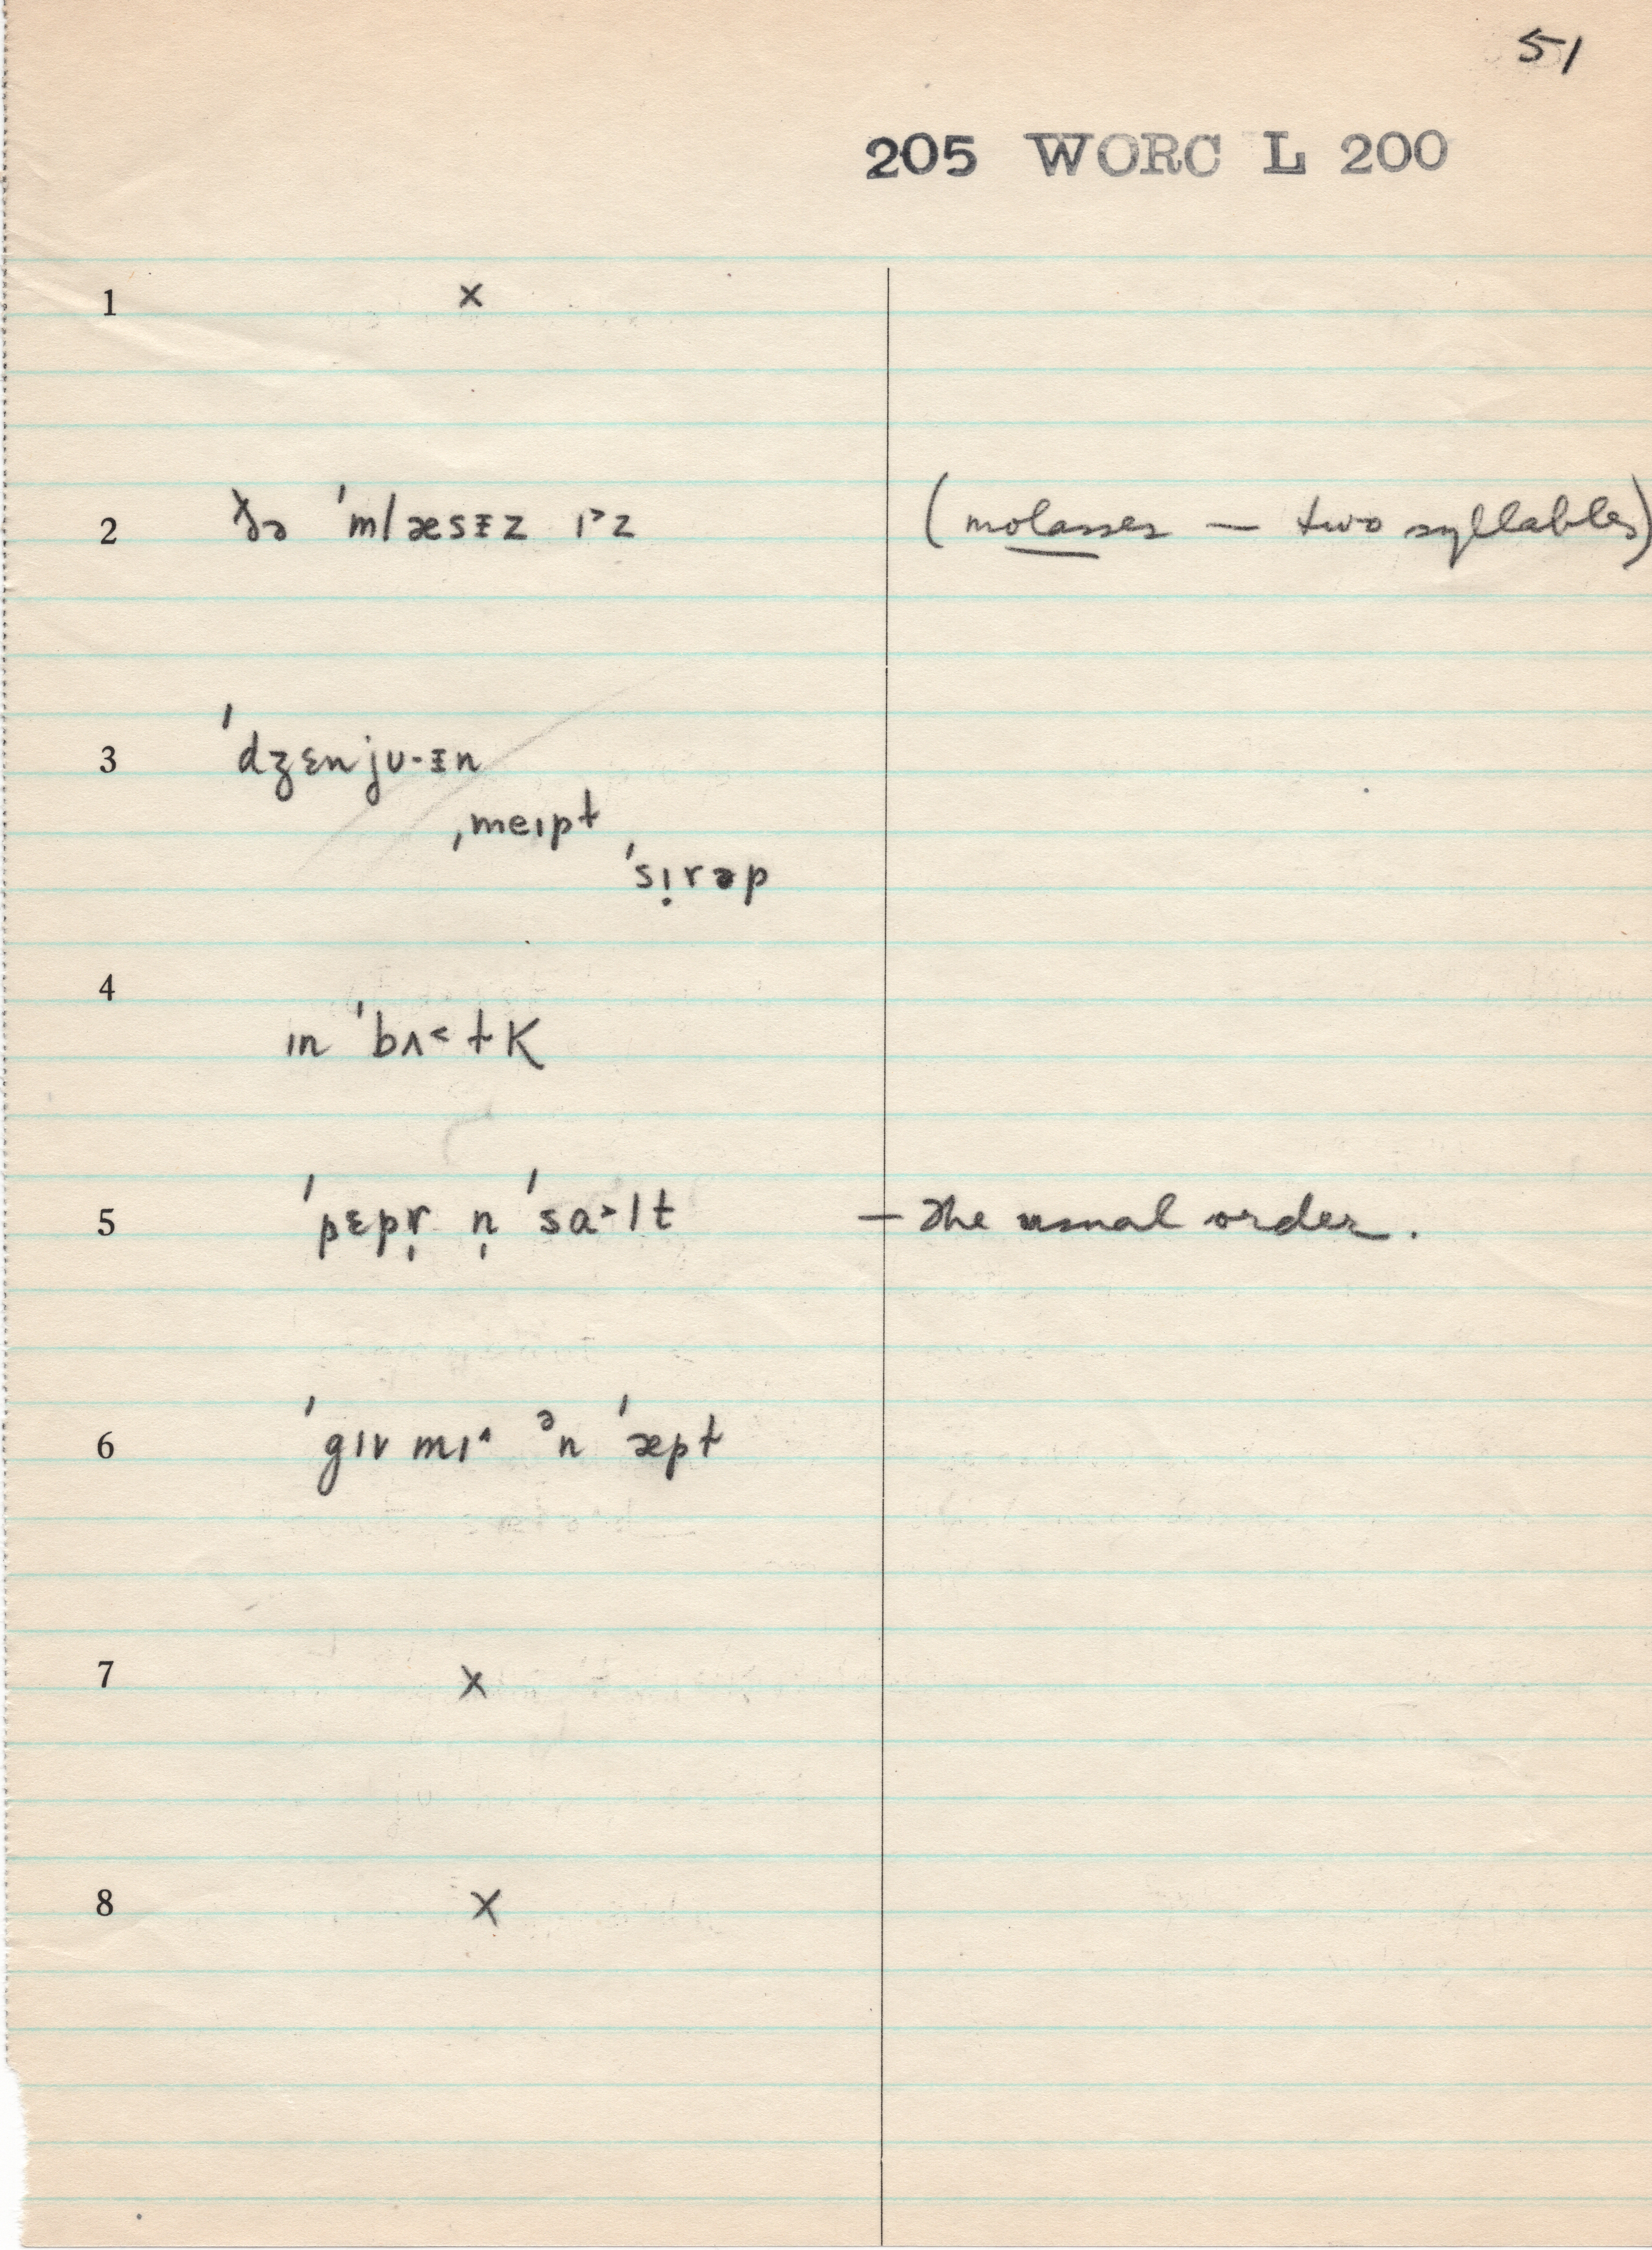 51
205 WORC L 200
1 ×
2 ðə ˈmlæsɪ̵z ɪ˃z (molasses — two syllables)
3 ˈdʒɛnjʊ-ɪ̵n
ˌmeɪpɫ
ˈsɪ̣rəp
4
ɪn ˈbʌ˂ɫK
5 ˈpɛpr̩ n̩ ˈsa˃lt — the usual order.
6 ˈgɪv mɪ˄ ᵊn ˈæpɫ
7 ×
8 ×